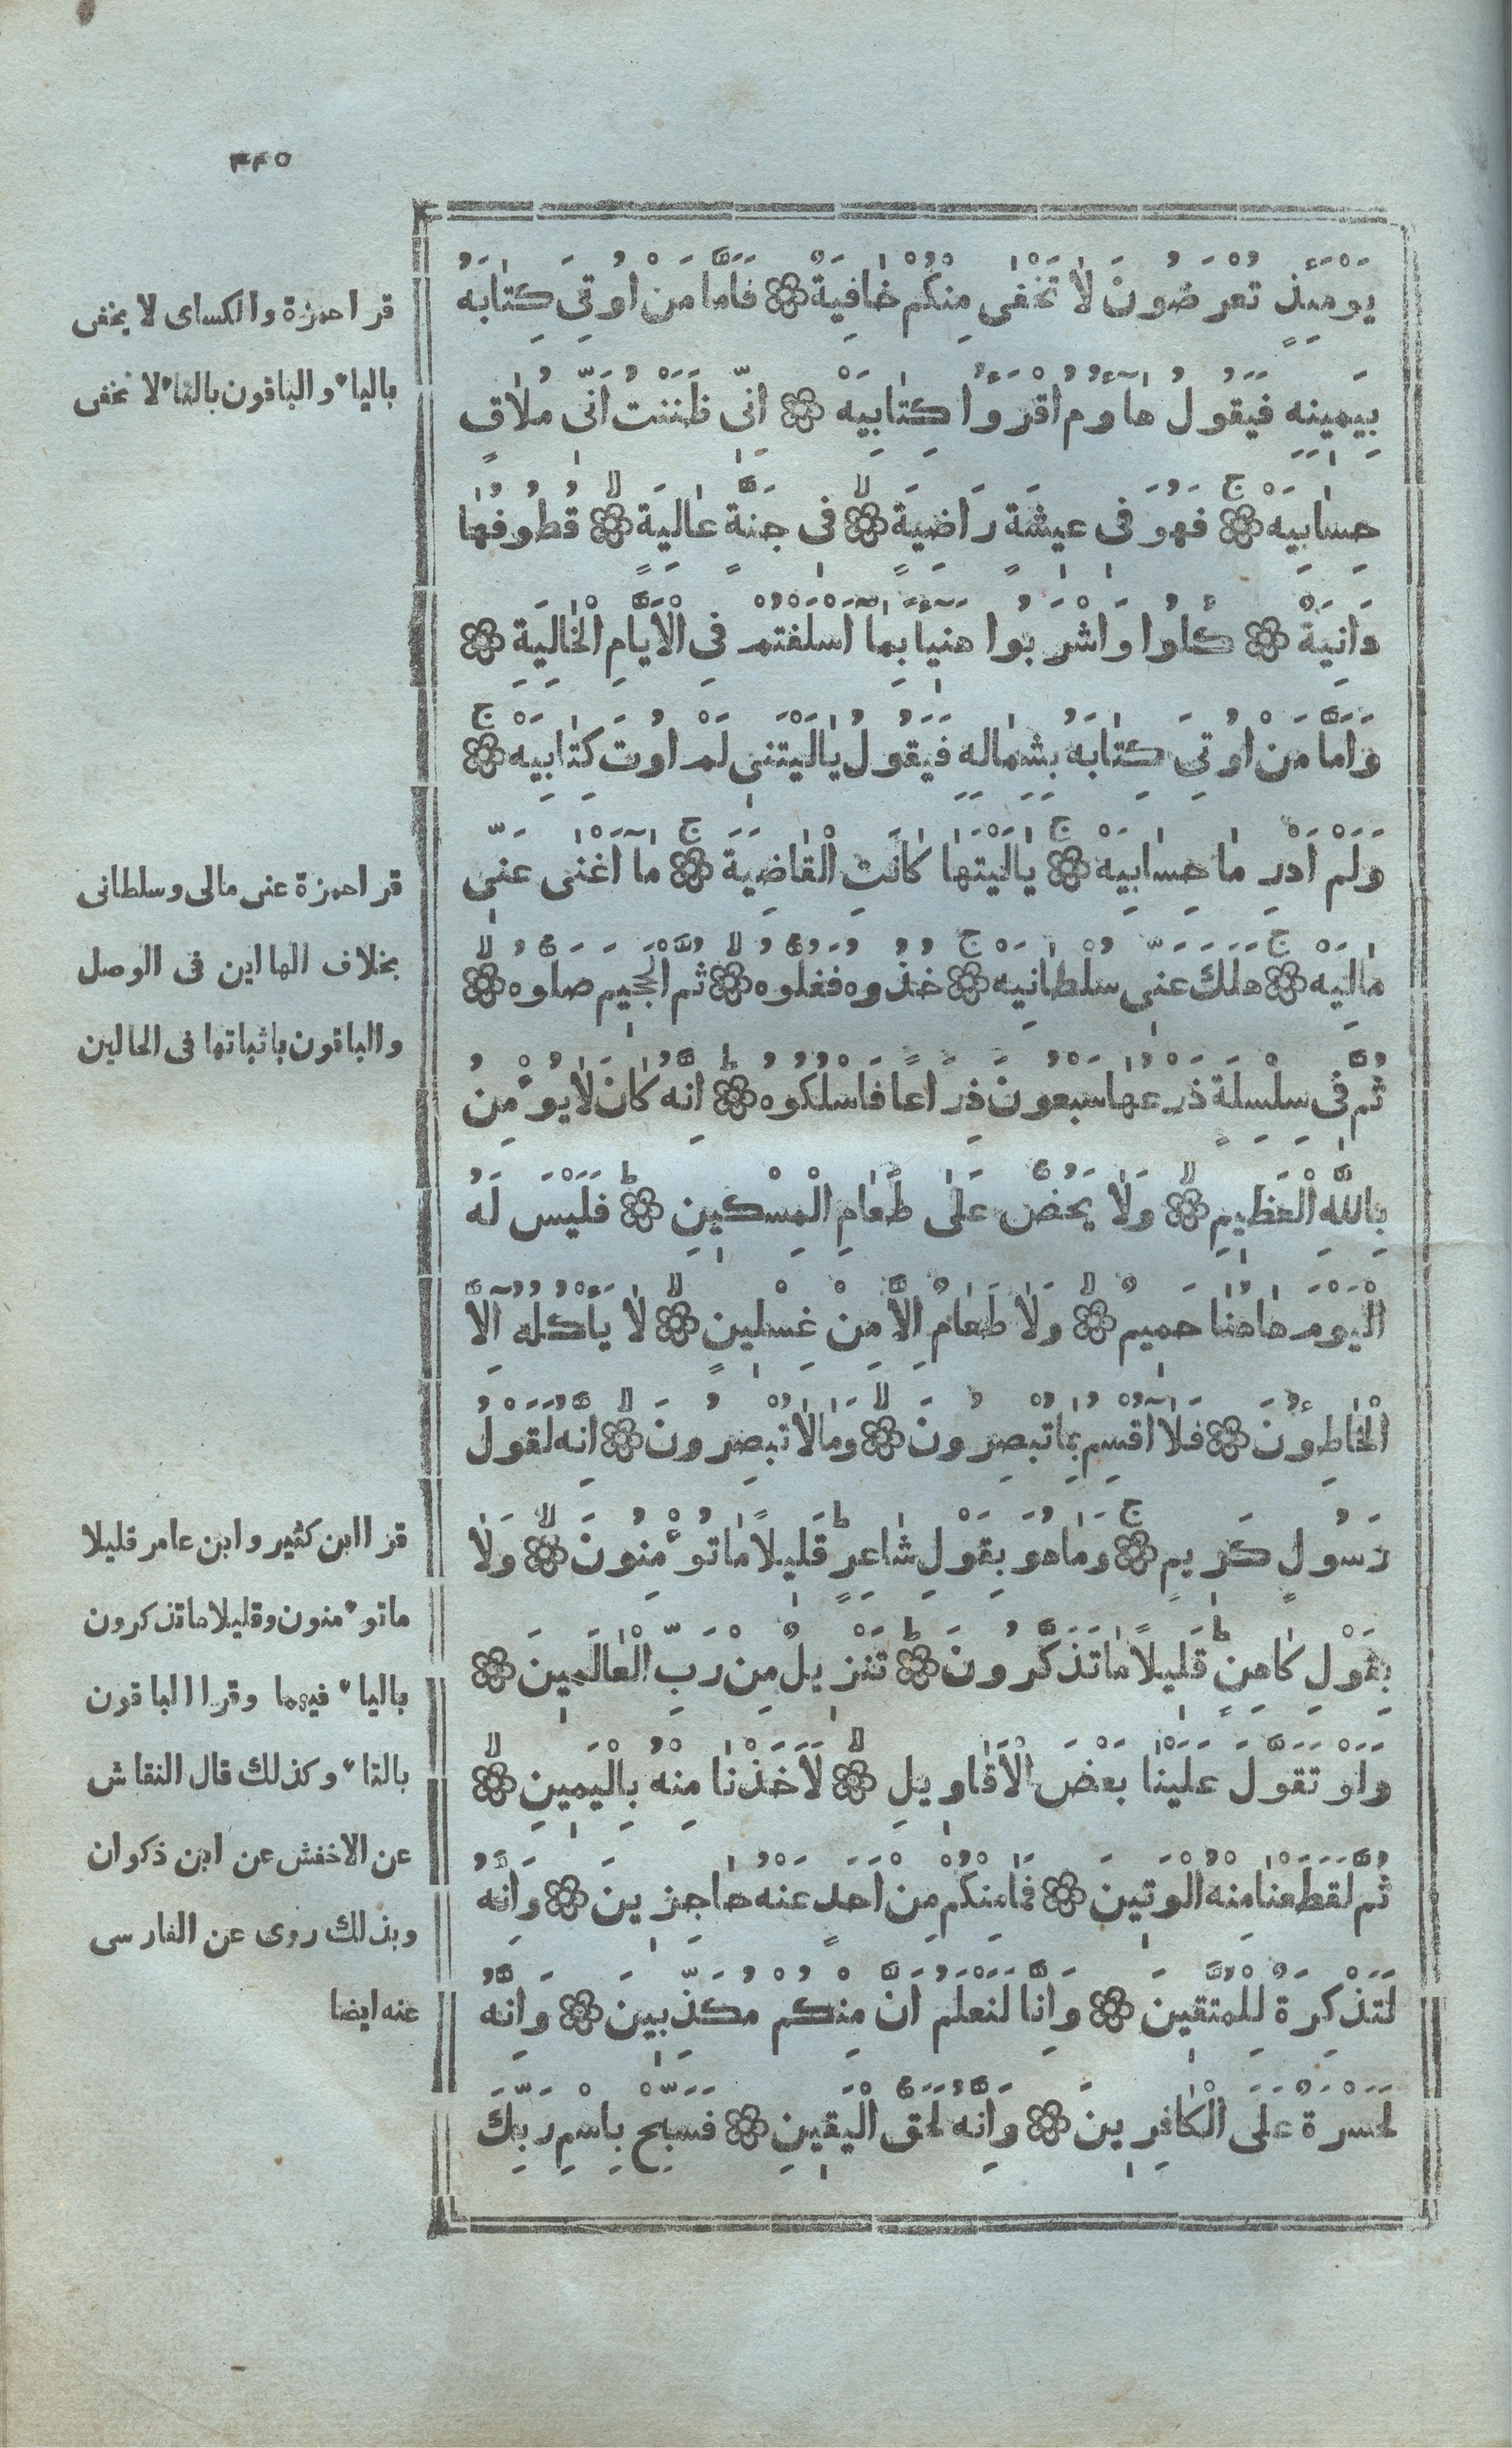 ٤٤٥
يَوْمَئِذٍ تُعْرَضُونَ لاٰ تَخْفٰى مِنْكُمْ خٰافِيَةٌ ۞ فَاَمَّا مَنْ اُوتِىَ كِتٰابَهُ
بِيَمِينِهِ فَيَقُولُ هٰاؤُمُ اقْرَؤُا كِتٰابِيَهْ ۞ اِنّٖى ظَنَنْتُ اَنّٖى مُلاٰقٍ
حِسٰابِيَهْ ۞ج فَهُوَ فٖى عِيشَةٍ رٰاضِيَةٍ ۞لا فٖى جَنَّةٍ عٰالِيَةٍ ۞لا قُطُوفُهٰا
دٰانِيَةٌ ۞ كُلُوا وَاشْرَبُوا هَنٖيٓـًٔا بِمٰٓا اَسْلَفْتُمْ فِى الْاَيّٰامِ الْخٰالِيَةِ ۞
وَاَمَّا مَنْ اُوتِىَ كِتٰابَهُ بِشِمٰالِهِ فَيَقُولُ يٰالَيْتَنٖى لَمْ اُوتَ كِتٰابِيَهْ ۞ج
وَلَمْ اَدْرِ مٰا حِسٰابِيَهْ ۞ج يٰالَيْتَهٰا كٰانَتِ الْقٰاضِيَةَ ۞ج مٰٓا اَغْنٰى عَنّٖى
مٰالِيَهْ ۞ج هَلَكَ عَنّٖى سُلْطٰانِيَهْ ۞ج خُذُوهُ فَغُلُّوهُ ۞لا ثُمَّ الْجَحٖيمَ صَلُّوهُ ۞لا
ثُمَّ فٖى سِلْسِلَةٍ ذَرْعُهٰا سَبْعُونَ ذِرٰاعًا فَاسْلُكُوهُ ۞ط اِنَّهُ كٰانَ لاٰ يُؤْمِنُ
بِاللّٰهِ الْعَظٖيمِ ۞لا وَلاٰ يَحُضُّ عَلٰى طَعٰامِ الْمِسْكٖينِ ۞ط فَلَيْسَ لَهُ
الْيَوْمَ هٰاهُنٰا حَمٖيمٌ ۞لا وَلاٰ طَعٰامٌ اِلَّا مِنْ غِسْلٖينٍ ۞لا لاٰ يَأْكُلُهُٓ اِلَّا
الْخٰاطِؤُنَ ۞ فَلآٰ اُقْسِمُ بِمٰا تُبْصِرُونَ ۞لا وَمٰا لاٰ تُبْصِرُونَ ۞لا اِنَّهُ لَقَوْلُ
رَسُولٍ كَرٖيمٍ ۞ج وَمٰا هُوَ بِقَوْلِ شٰاعِرٍط قَلٖيلاً مٰا تُؤْمِنُونَ ۞لا وَلاٰ
بِقَوْلِ كٰاهِنٍط قَلٖيلاً مٰا تَذَكَّرُونَ ۞ط تَنْزٖيلٌ مِنْ رَبِّ الْعٰالَمٖينَ ۞
وَلَوْ تَقَوَّلَ عَلَيْنٰا بَعْضَ الْاَقٰاوٖيلِ ۞لا لَاَخَذْنٰا مِنْهُ بِالْيَمٖينِ ۞لا
ثُمَّ لَقَطَعْنٰا مِنْهُ الْوَتٖينَ ۞ فَمٰا مِنْكُمْ مِنْ اَحَدٍ عَنْهُ حٰاجِزٖينَ ۞ وَاِنَّهُ
لَتَذْكِرَةٌ لِلْمُتَّقٖينَ ۞ وَاِنَّا لَنَعْلَمُ اَنَّ مِنْكُمْ مُكَذِّبٖينَ ۞ وَاِنَّهُ
لَحَسْرَةٌ عَلَى الْكٰافِرٖينَ ۞ وَاِنَّهُ لَحَقُّ الْيَقٖينِ ۞ فَسَبِّحْ بِاسْمِ رَبِّكَ
قرا حمزة والكساى لا يخفى
باليا ٔ والباقون بالتا ٔ لا تخفى
قرا حمزة عنى مالى وسلطانى
بخلاف الهااين فى الوصل
والباقون باثباتها فى الحالين
قرا ابن كثير وابن عامر قليلا
ماتو ٔمنون وقليلا ماتذكرون
باليا ٔ فيهما وقرا الباقون
بالتا ٔ وكذلك قال النقاش
عن الاخفش عن ابن ذكوان
وبذلك روى عن الفارسى
عنه ايضا